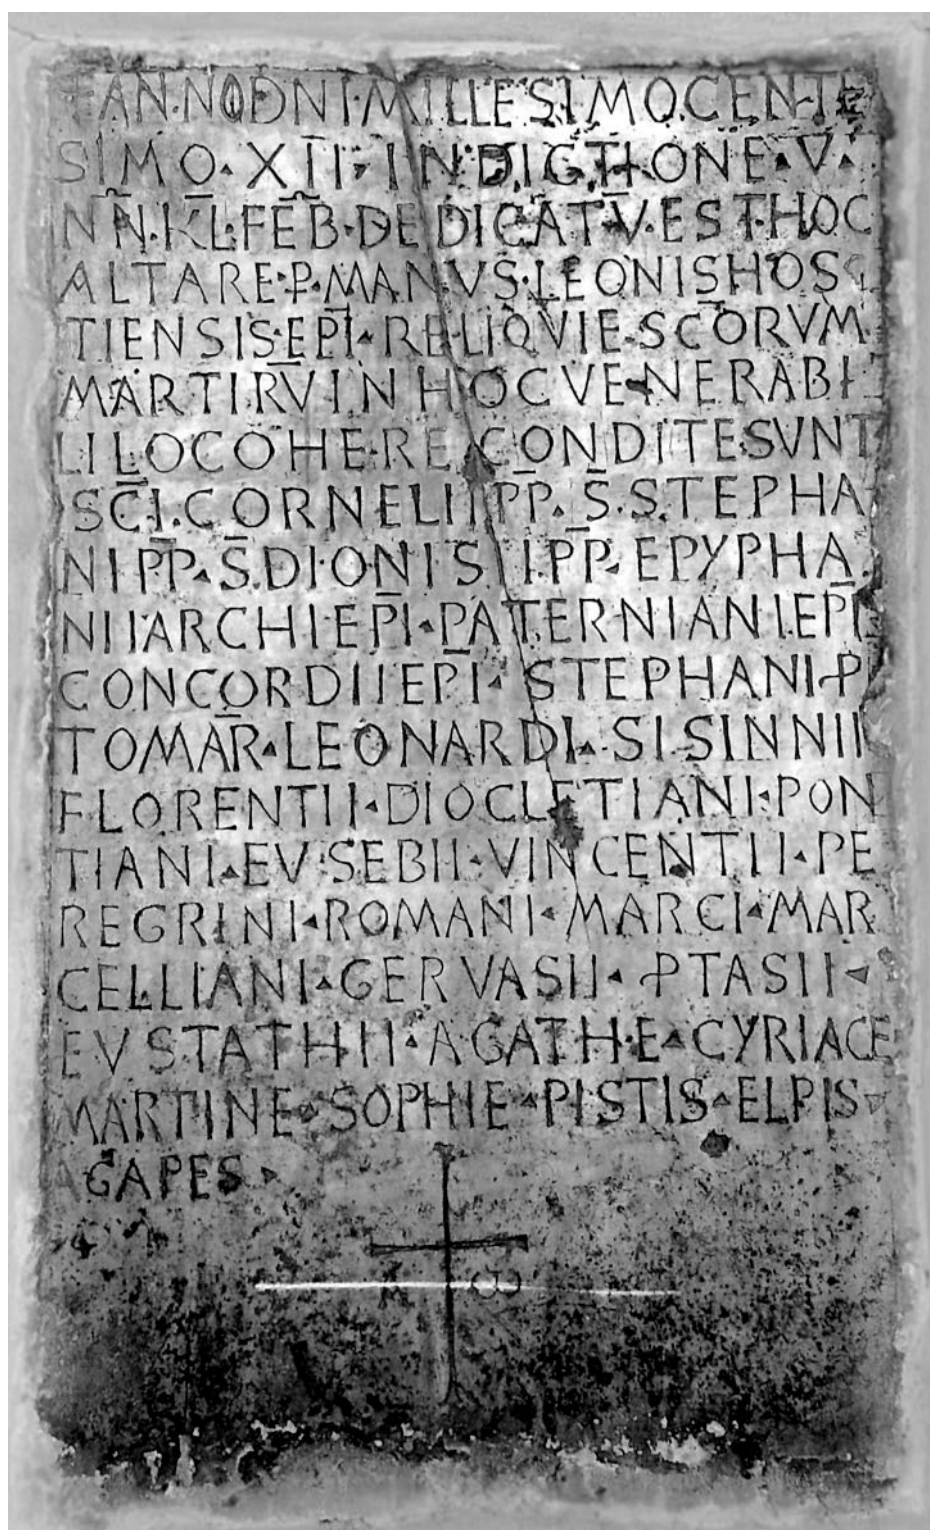 † AN·NO DNI·MILLESIMO CENTE
SIMO · XII · INDICTIONE · V ·
NN̄·KL̄·FEB̄·DEDICATV̄·EST·HOC
ALTARE·P̱·MANVS·LEONIS HOS
TIENSIS·EPĪ·RELIQVIE·SC̄ORVM
MARTIRV̄ IN HOC VENERABI
LI LOCO HERE CONDITE SVNT
SC̄I·CORNELII PP̄·S̄·STEPHA
NI PP̄·S̄·DIONISII·PP̄·EPYPHA
NII ARCHIEPĪ·PATERNIANI·EPĪ
CONCORDII EPĪ·STEPHANI·P
TOMAR̄·LEONARDI·SISINNII
FLORENTII·DIOCLETIANI·PON
TIANI·EVSEBII·VINCENTII·PE
REGRINI·ROMANI·MARCI·MAR
CELLIANI·GERVASII·PTASII·
EVSTATHII·AGATHE·CYRIACE
MARTINE·SOPHIE·PISTIS·ELPIS·
AGAPES·
ω